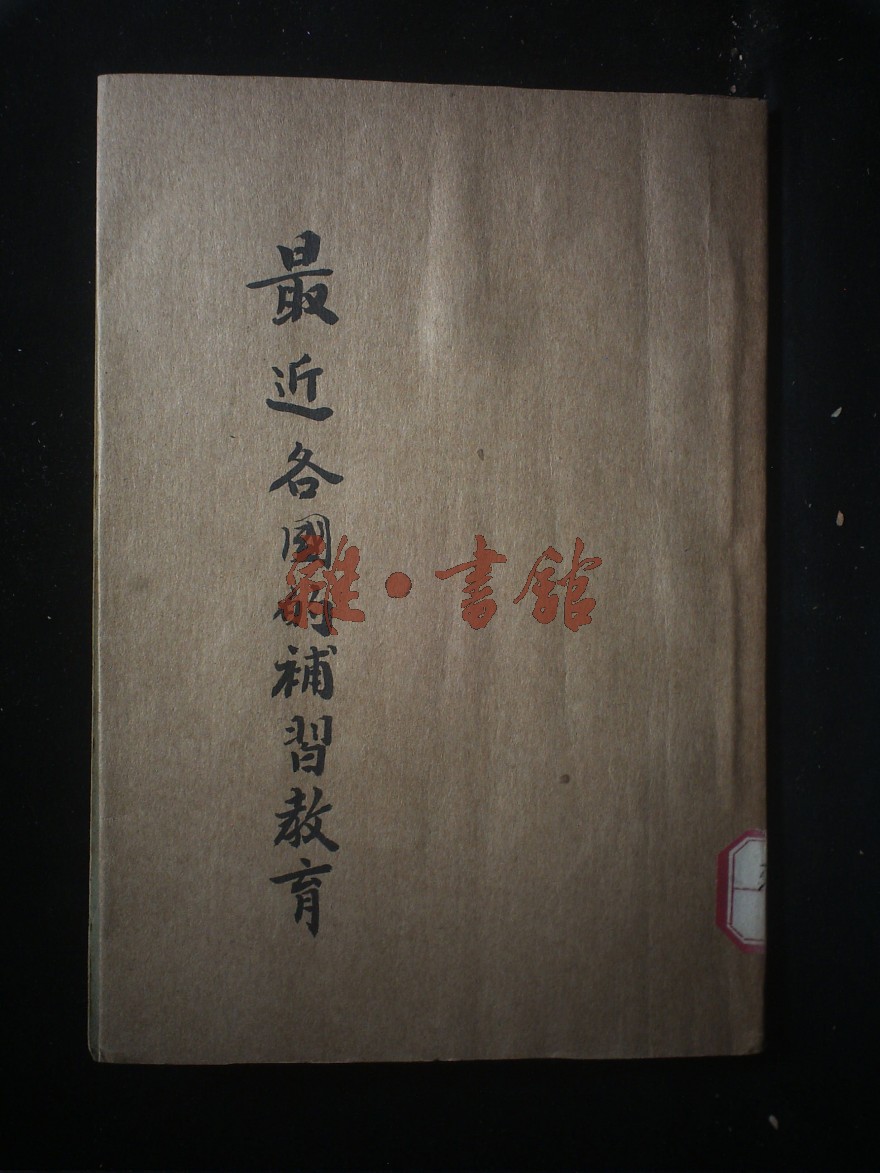 最近各國的補習教育
雜·書館